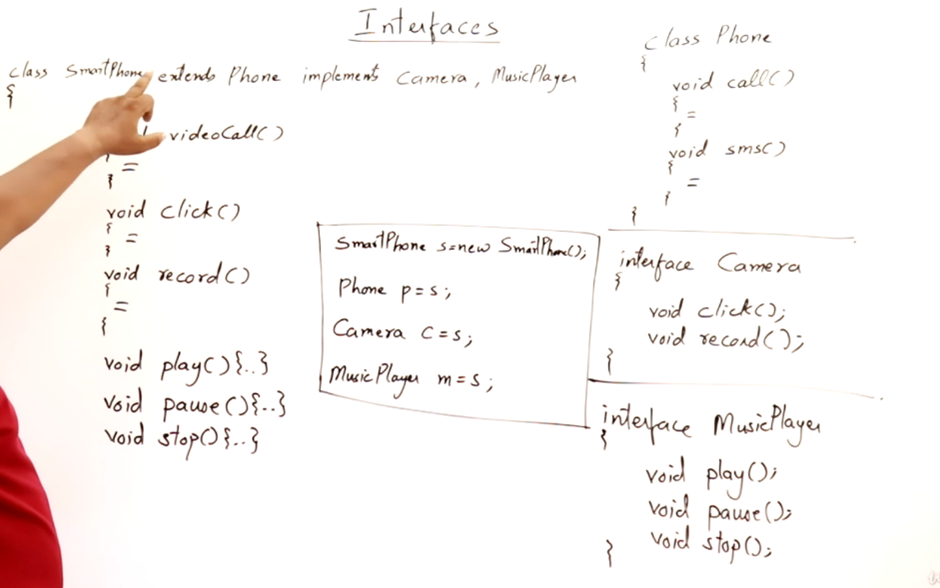 Interfaces
class SmartPhone extends Phone implements Camera, MusicPlayer
{
videoCall()
{
=
}
void click()
{
=
}
void record()
{
=
{
void play(){..}
void pause(){..}
void stop(){..}
SmartPhone s=new SmartPhone();
Phone p=s;
Camera c=s;
MusicPlayer m=s;
class Phone
{
void call()
{
=
}
void sms()
{
=
}
}
interface Camera
{
void click();
void record();
}
interface MusicPlayer
{
void play();
void pause();
void stop();
}